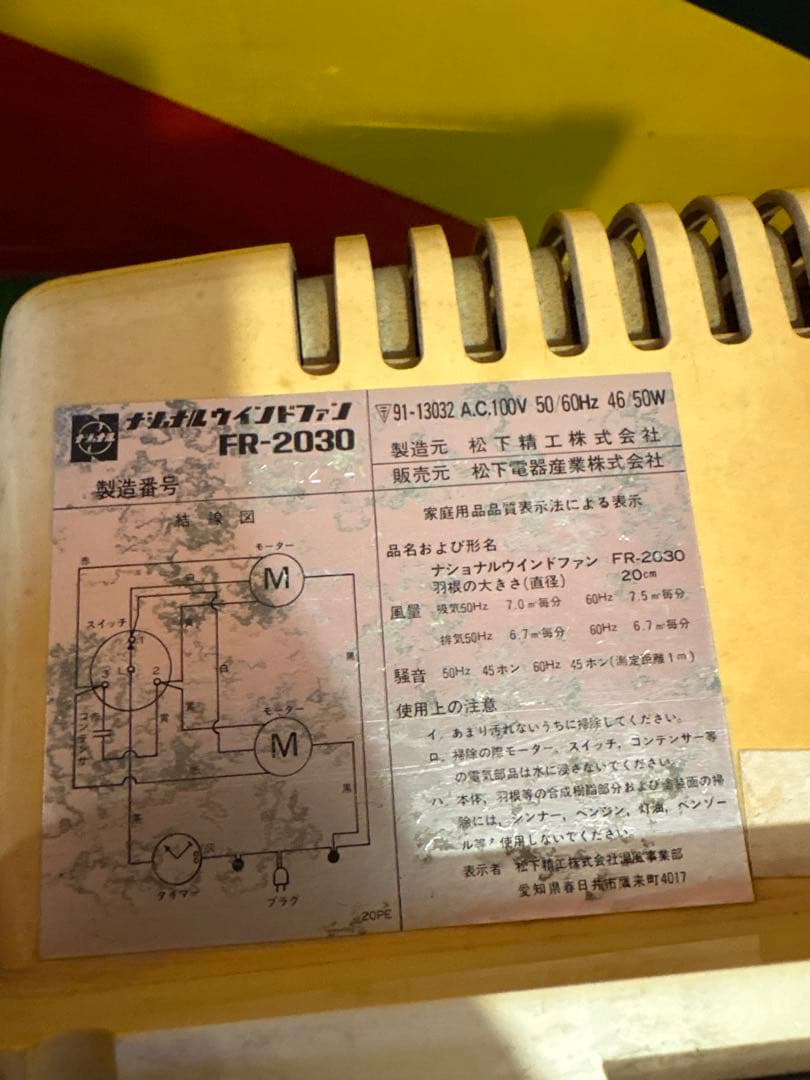 ナショナル
ナショナルウインドファン
FR-2030
製造番号
91-13032 A.C.100V 50/60Hz 46/50W
製造元 松下精工株式会社
販売元 松下電器産業株式会社
結線図
モーター
M
赤
白
黄
黒
スイッチ
1
L
3
2
白
黄
コンデンサ
M
黒
タイマー
プラグ
20PE
家庭用品品質表示法による表示
品名および形名
ナショナルウインドファン FR-2030
羽根の大きさ(直径) 20cm
風量 吸気50Hz 7.0㎥毎分 60Hz 7.5㎥毎分
排気50Hz 6.7㎥毎分 60Hz 6.7㎥毎分
騒音 50Hz 45ホン 60Hz 45ホン(測定距離1m)
使用上の注意
イ、あまり汚れないうちに掃除してください。
ロ、掃除の際モーター、スイッチ、コンデンサー等
の電気部品は水に浸さないでください。
ハ、本体、羽根等の合成樹脂部分および塗装面の掃
除には、シンナー、ベンジン、灯油、ベンゾー
ル等を使用しないでください。
表示者 松下精工株式会社温風事業部
愛知県春日井市鷹来町4017